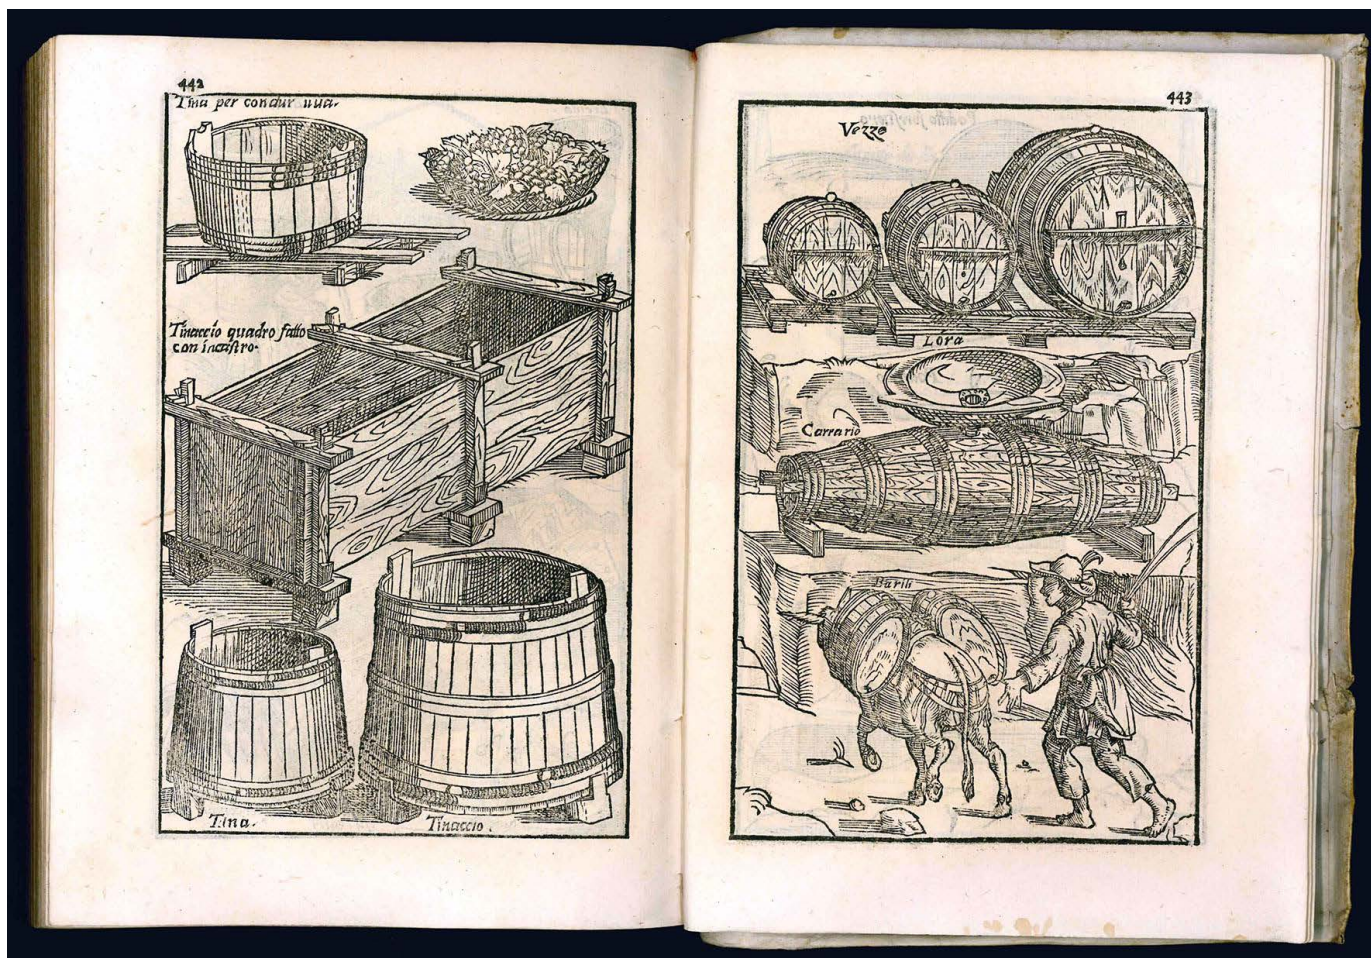 442
Tina per condur uua.
Tinaccio quadro fatto
con incastro.
Tina.
Tinaccio.
443
Vezze
Lora
Carrario
Barili